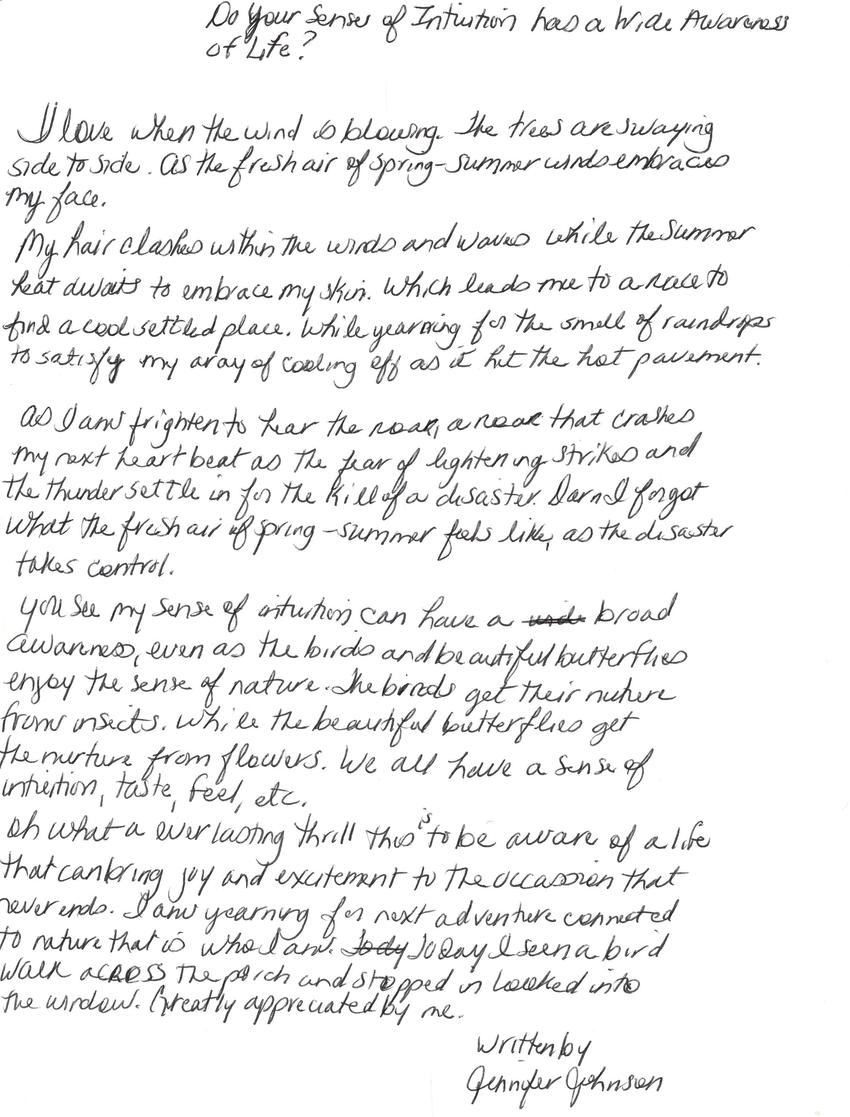 Do Your Sense of Intuition has a Wide Awareness
of Life?
I love when the wind is blowing. The trees are swaying
side to side. As the fresh air of spring-summer winds embraces
my face.
My hair clashes within the winds and waves while the summer
heat awaits to embrace my skin. Which leads me to a race to
find a cool settled place. While yearning for the smell of raindrops
to satisfy my aray of cooling off as it hit the hot pavement.
As I am frighten to hear the roar, a roar that crashes
my next heart beat as the fear of lightening strikes and
the thunder settle in for the kill of a disaster. Darn I forgot
what the fresh air of spring-summer feels like, as the disaster
takes control.
You see my sense of intuition can have a wide broad
awareness, even as the birds and beautiful butterflies
enjoy the sense of nature. The birds get their nuture
from insects. While the beautiful butterflies get
the nurture from flowers. We all have a sense of
intuition, taste, feel, etc.
Oh what a everlasting thrill this is to be aware of a life
that can bring joy and excitement to the occassion that
never ends. I am yearning for next adventure connected
to nature that is who I am. Tody Today I seen a bird
walk across the porch and stopped in looked into
the window. Greatly appreciated by me.
Written by
Jennifer Johnson